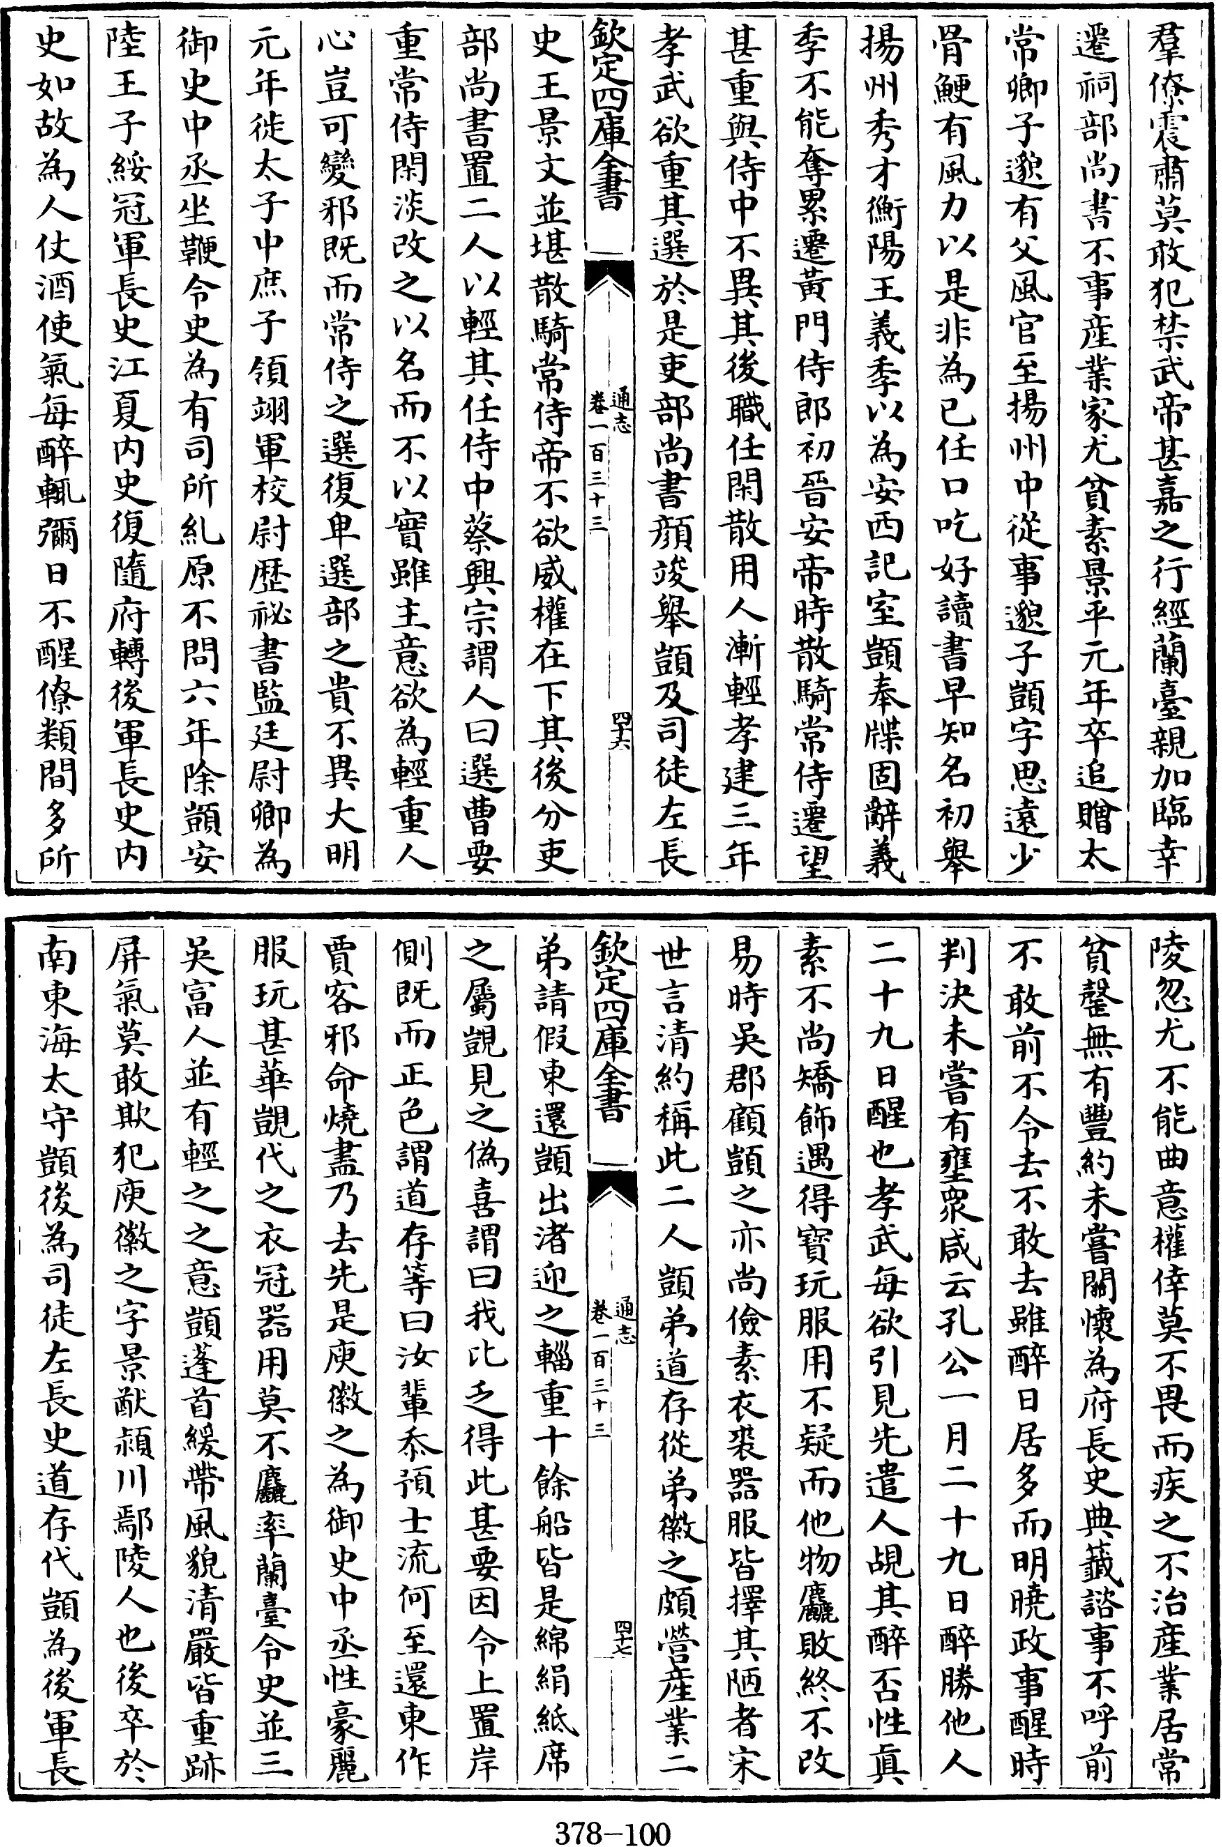 羣僚震肅莫敢犯禁武帝甚嘉之行經蘭臺親加臨幸
遷祠部尚書不事産業家尤貧素景平元年卒追贈太
常卿子邈有父風官至揚州中從事邈子顗字思遠少
骨鯁有風力以是非為己任口吃好讀書早知名初舉
揚州秀才衡陽王義季以為安西記室顗奉牒固辭義
季不能奪累遷黃門侍郎初晉安帝時散騎常侍遷望
甚重與侍中不異其後職任閑散用人漸輕孝建三年
孝武欲重其選於是吏部尚書顔竣舉顗及司徒左長
欽定四庫全書
通志
卷一百三十三
四十六
史王景文並堪散騎常侍帝不欲威權在下其後分吏
部尚書置二人以輕其任侍中蔡興宗謂人曰選曹要
重常侍閑淡改之以名而不以實雖主意欲為輕重人
心豈可變邪既而常侍之選復卑選部之貴不異大明
元年徙太子中庶子領翊軍校尉歴祕書監廷尉卿為
御史中丞坐鞭令史為有司所糺原不問六年除顗安
陸王子綏冠軍長史江夏内史復隨府轉後軍長史内
史如故為人仗酒使氣每醉輒彌日不醒僚類間多所
陵忽尤不能曲意權倖莫不畏而疾之不治産業居常
貧罄無有豐約未嘗關懷為府長史典籖諮事不呼前
不敢前不令去不敢去雖醉日居多而明曉政事醒時
判決未嘗有壅衆咸云孔公一月二十九日醉勝他人
二十九日醒也孝武每欲引見先遣人覘其醉否性真
素不尚矯飾遇得寳玩服用不疑而他物麤敗終不改
易時吳郡顧顗之亦尚儉素衣裘器服皆擇其陋者宋
世言清約稱此二人顗弟道存從弟徽之頗營産業二
欽定四庫全書
通志
卷一百三十三
四十七
弟請假東還顗出渚迎之輜重十餘船皆是綿絹紙席
之屬覬見之偽喜謂曰我比乏得此甚要因令上置岸
側既而正色謂道存等曰汝輩忝預士流何至還東作
賈客邪命燒盡乃去先是庾徽之為御史中丞性豪麗
服玩甚華覬代之衣冠器用莫不麤率蘭臺令史並三
吳富人並有輕之之意顗蓬首緩帶風貌清嚴皆重跡
屏氣莫敢欺犯庾徽之字景猷潁川鄢陵人也後卒於
南東海太守顗後為司徒左長史道存代顗為後軍長
378-100